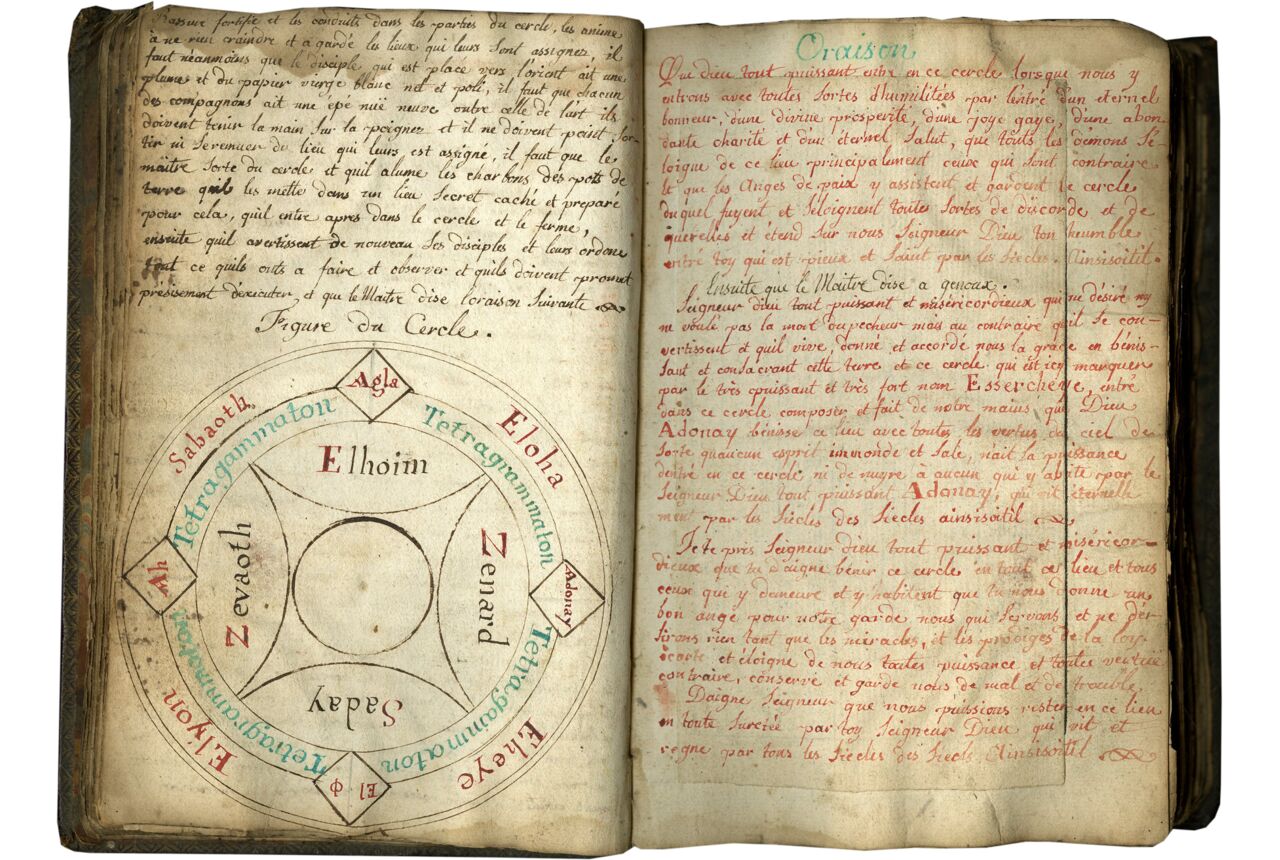 Rassure fortifie et les conduits dans les parties du cercle, les anime
a ne rien craindre et a garde les lieux qui leurs sont assignez, il
faut neanmoins que le disciple qui est place vers l'orient ait une
plume et du papier vierge blanc net et poli, il faut que chacun
des compagnons ait une épé nuë neuve outre celle de l'art ils
doivent tenir la main sur la poignez et il ne doivent point sor-
tir ni se remuer du lieu qui leurs est assigné, il faut que le
maitre sorte du cercle et quil alume les charbons des pots de
terre quil les mette dans un lieu secret caché et preparé
pour cela, quil entre apres dans le cercle et le ferme,
ensuite quil avertissent de nouveau ses disciples et leurs ordone
tout ce quils onts a faire et observer et quils doivent promet
présisement dexecuter, et que le Maitre dise loraison Suivante
Figure du Cercle.
Agla
Sabaoth
Eloha
Tetragammaton
Tetragrammaton
Elhoim
Zevaoth
Zenard
Ah
Adonay
Saday
Tetragrammaton
Tetragammaton
Elyon
Eheye
El Φ
Oraison
Que dieu tout puissant entre en ce cercle lorsque nous y
entrons avec toutes sortes d'humilitées par lentré d'un eternel
bonneur, d'une divine prosperité, d'une joye gaye, d'une abon
dante charité et d'un éternel Salut, que touts les Démons sé-
loigne de ce lieu principalement ceux qui sont contraire
et que les Anges de paix y assistent et gardent le cercle
duquel fuyent et séloignent toutes sortes de discorde et de
querelles et étend sur nous Seigneur Dieu ton heumble
entré toy qui est pieux et Saint par les siécles. Ainsisoitil.
Ensuite que le Maitre dise a genoux.
Seigneur dieu tout puissant et miséricordieux qui ne désiré ny
ne voulé pas la mort du pecheur mais au contraire quil se con-
vertissent et quil vive, donné et accordé nous la grace en bénis-
sant et consacrant cette terre et ce cercle qui est icy marquer
par le trés puissant et trés fort nom Essercheye, entré
dans ce cercle composer et fait de notre mains que Dieu
Adonay bénisse ce lieu avec toutes les vertus du ciel de
sorte quaucun esprit immonde et sale, nait la puissance
dentré en ce cercle ni de nuyre à aucun qui y abite par le
Seigneur Dieu tout puissant Adonay, qui vit éternelle
ment par les siécles des siécles ainsisoitil
Je te prés Seigneur dieu tout puissant et miséricor-
dieux que tu Daigne bénir ce cercle en tout ce lieu et tous
ceux qui y demeure et y habitent que tu nous donne un
bon ange pour notre garde nous qui servons et ne dé-
sirons rien tant que les miracles, et les prodiges de la loy
écarte et éloigne de nous toutes puissance et toutes vertüe
contraire, conservé et garde nous de mal et de trouble
Daigne Seigneur que nous puissions rester en ce lieu
en toute sureteé par toy Seigneur Dieu qui vit et
regne par tous les siécles des siecls Ainsisoitil